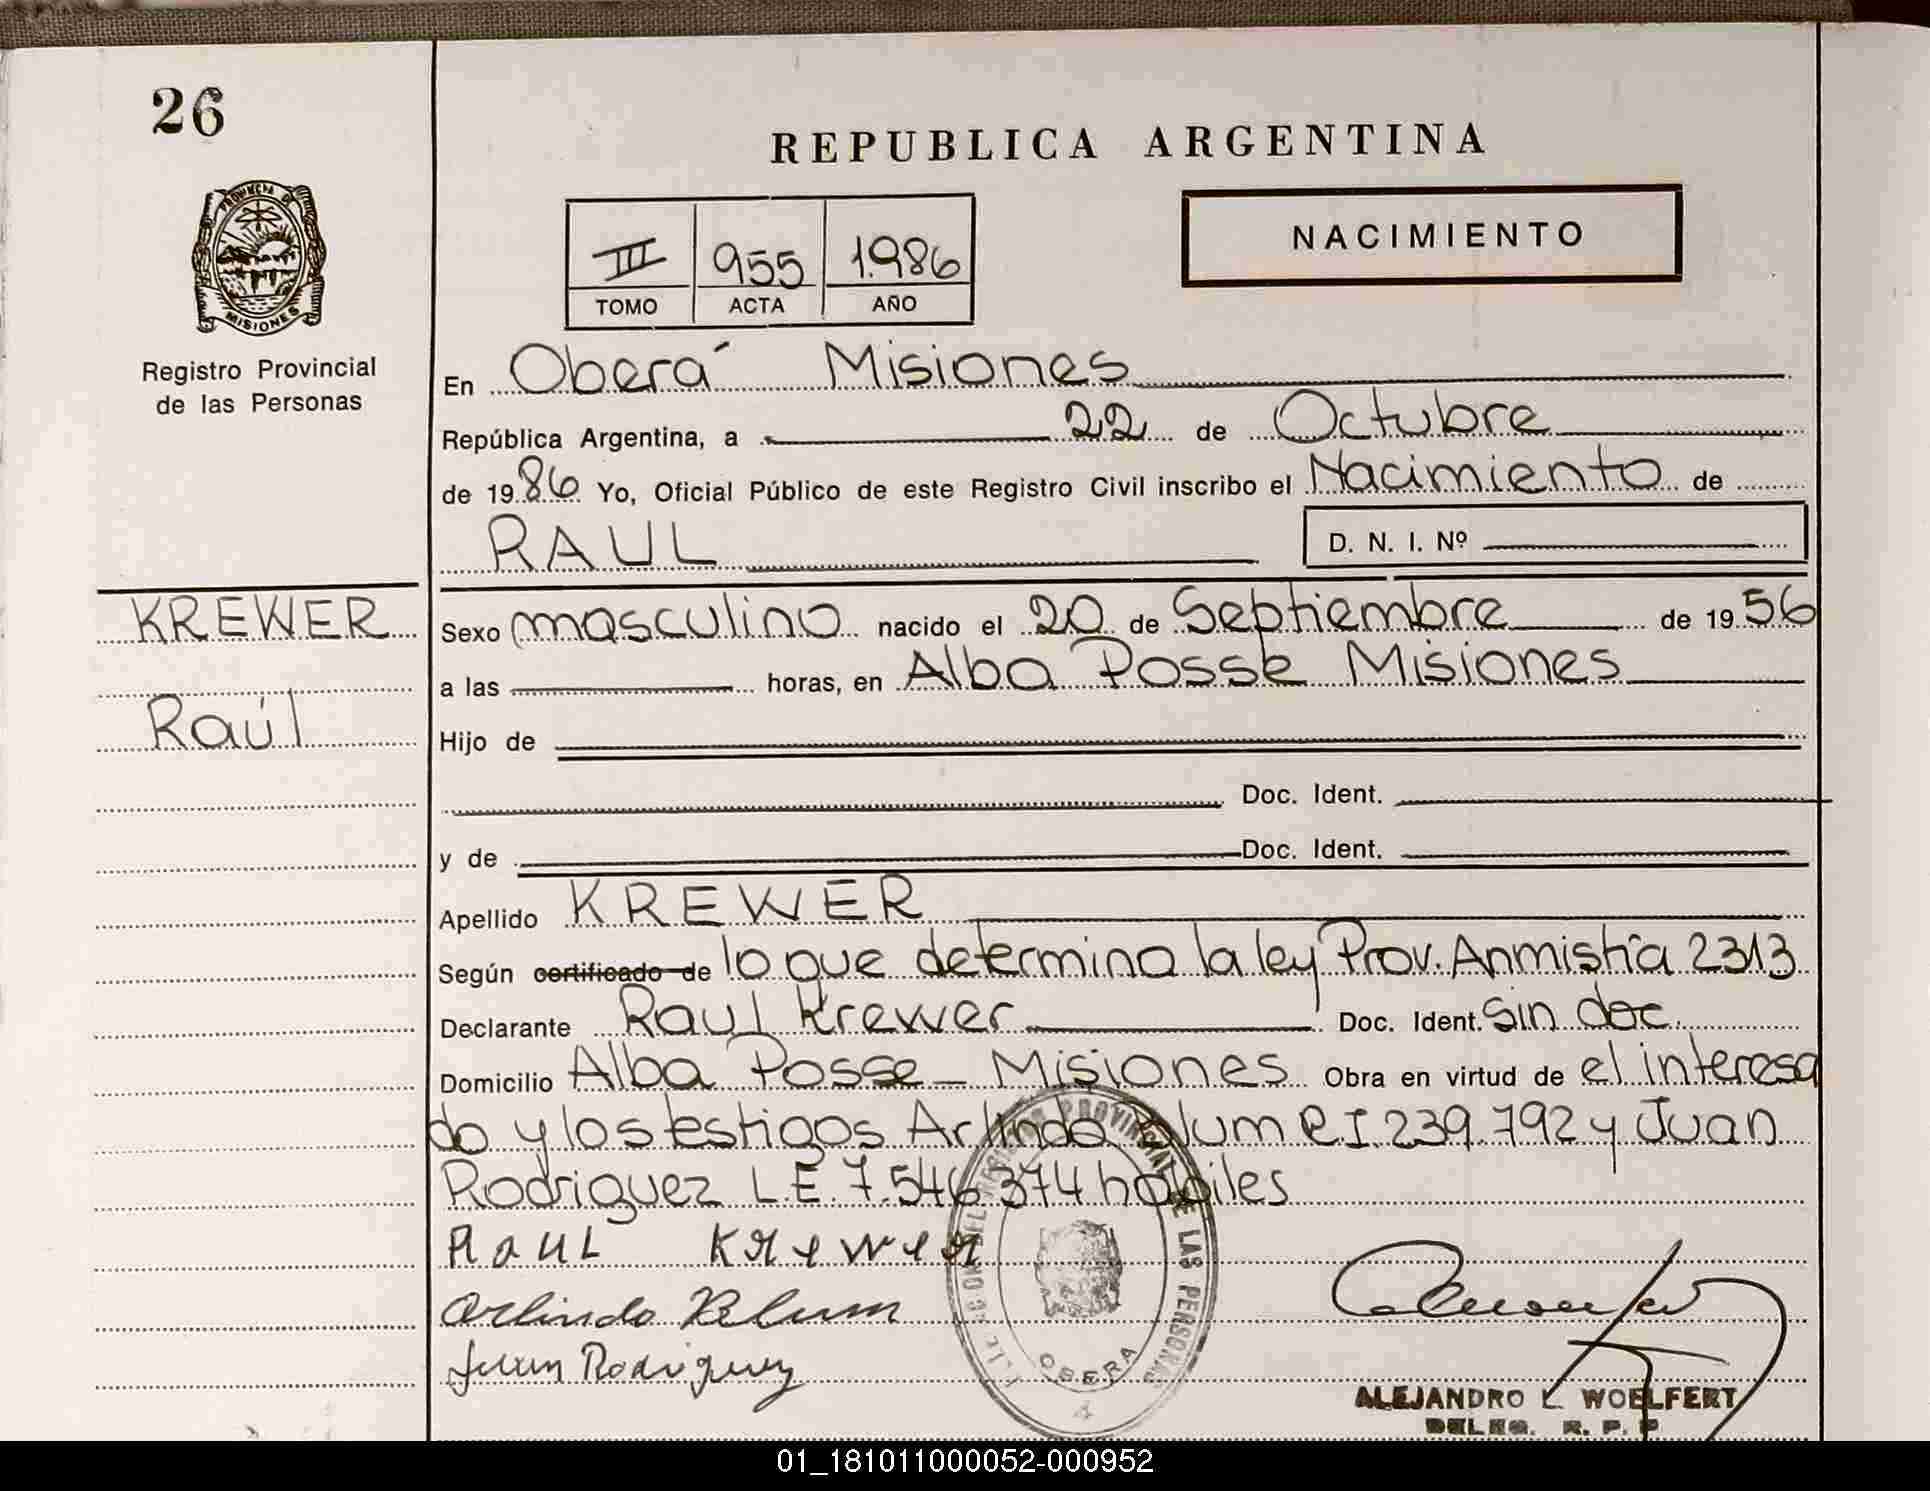 26
REPUBLICA ARGENTINA
PROVINCIA DE
MISIONES
Registro Provincial
de las Personas
III 955 1.986
TOMO ACTA AÑO
NACIMIENTO
En Oberá Misiones
República Argentina, a 22 de Octubre
de 1986 Yo, Oficial Público de este Registro Civil inscribo el Nacimiento de
RAUL D. N. I. Nº
KREWER
Raúl
Sexo masculino nacido el 20 de Septiembre de 1956
a las horas, en Alba Posse Misiones
Hijo de
Doc. Ident.
y de Doc. Ident.
Apellido KREWER
Según certificado de lo que determina la ley Prov. Anmistía 2313
Declarante Raul Krewer Doc. Ident. Sin doc.
Domicilio Alba Posse - Misiones Obra en virtud de el interesa
do y los testigos Arlindo Blum C I. 239.792 y Juan
Rodriguez L.E. 7.546.374 habiles
RaUL KReweR
Orlindo Blum
Juan Rodriguez
REGISTRO PROVINCIAL DE LAS PERSONAS
OBERA
ALEJANDRO L. WOELFERT
DELEG. R. P. P.
01_181011000052-000952